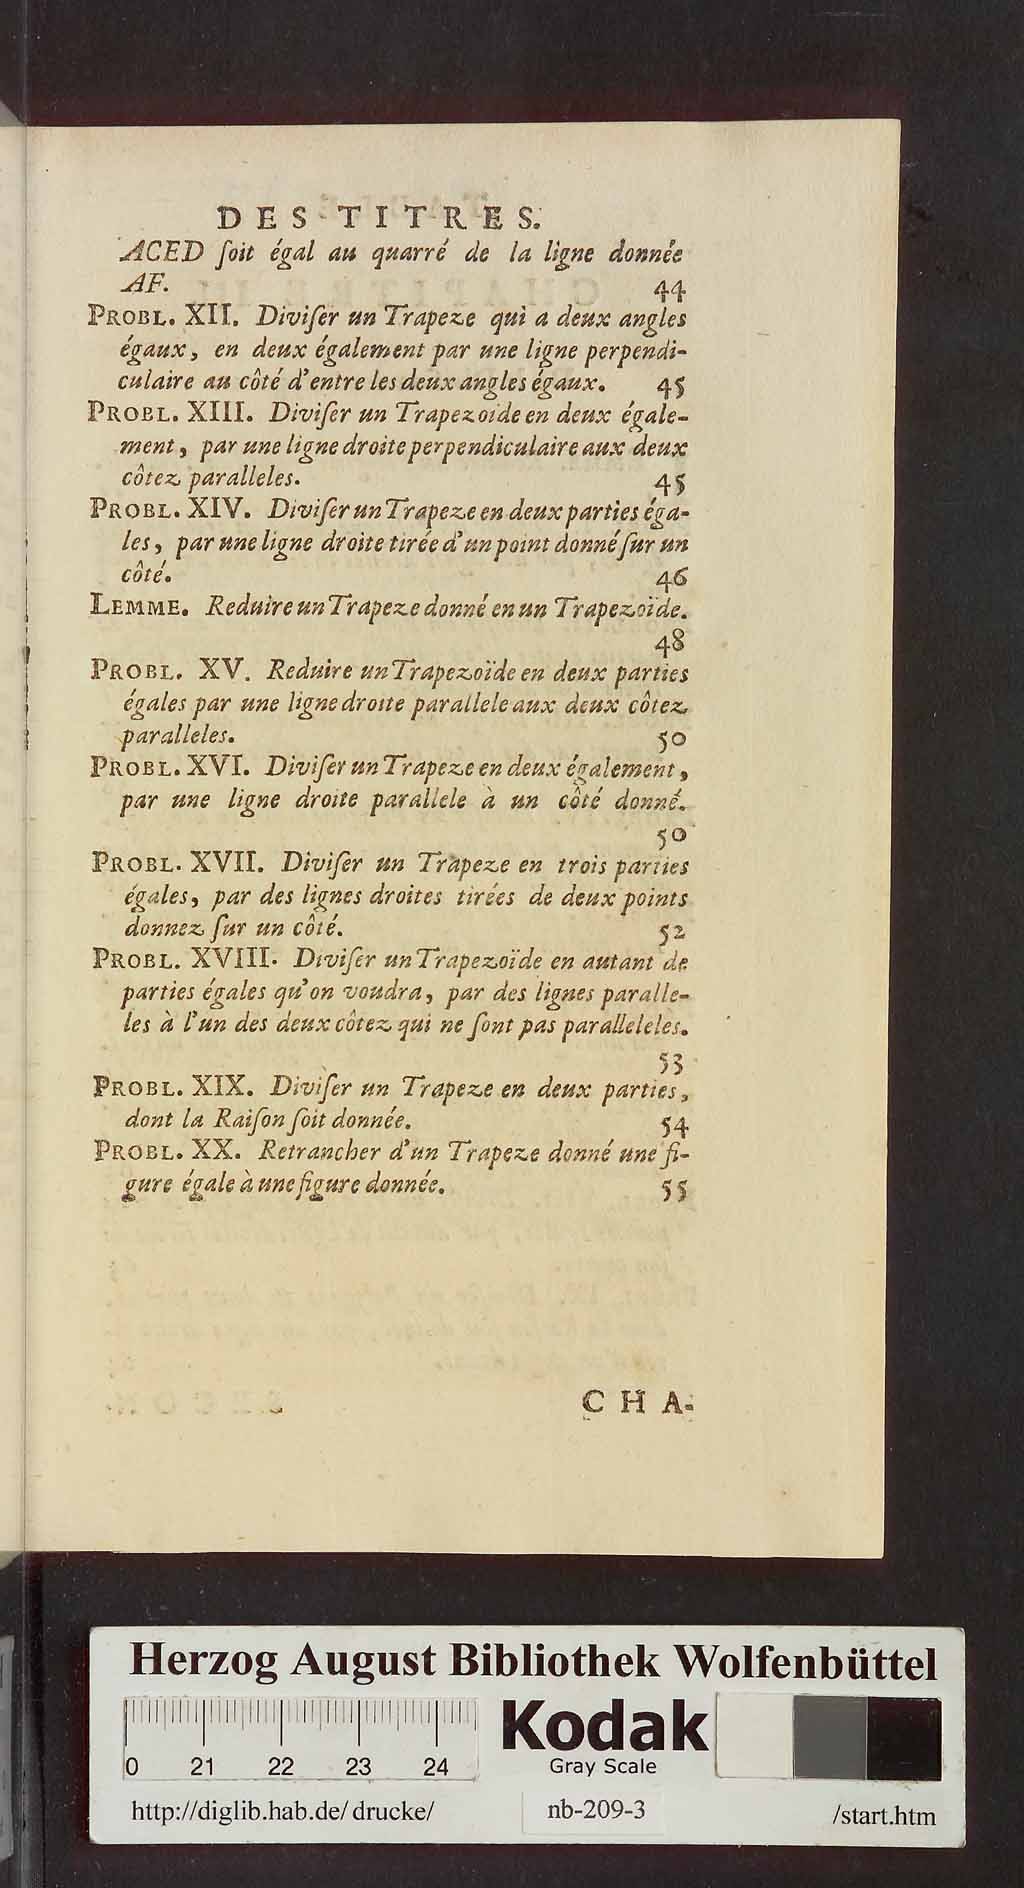 DES TITRES.
ACED ſoit égal au quarré de la ligne donnée
AF. 44
PROBL. XII. Diviſer un Trapeze qui a deux angles
égaux, en deux également par une ligne perpendi-
culaire au côté d'entre les deux angles égaux. 45
PROBL. XIII. Diviſer un Trapezoide en deux égale-
ment, par une ligne droite perpendiculaire aux deux
côtez paralleles. 45
PROBL. XIV. Diviſer un Trapeze en deux parties éga-
les, par une ligne droite tirée d'un point donné ſur un
côté. 46
LEMME. Reduire un Trapeze donné en un Trapezoïde.
48
PROBL. XV. Reduire un Trapezoïde en deux parties
égales par une ligne droite parallele aux deux côtez
paralleles. 50
PROBL. XVI. Diviſer un Trapeze en deux également,
par une ligne droite parallele à un côté donné.
50
PROBL. XVII. Diviſer un Trapeze en trois parties
égales, par des lignes droites tirées de deux points
donnez ſur un côté. 52
PROBL. XVIII. Diviſer un Trapezoïde en autant de
parties égales qu'on voudra, par des lignes paralle-
les à l'un des deux côtez qui ne ſont pas paralleleles.
53
PROBL. XIX. Diviſer un Trapeze en deux parties,
dont la Raiſon ſoit donnée. 54
PROBL. XX. Retrancher d'un Trapeze donné une fi-
gure égale à une figure donnée. 55
CHA-
Herzog August Bibliothek Wolfenbüttel
0 21 22 23 24
Kodak
Gray Scale
http://diglib.hab.de/drucke/ nb-209-3 /start.htm